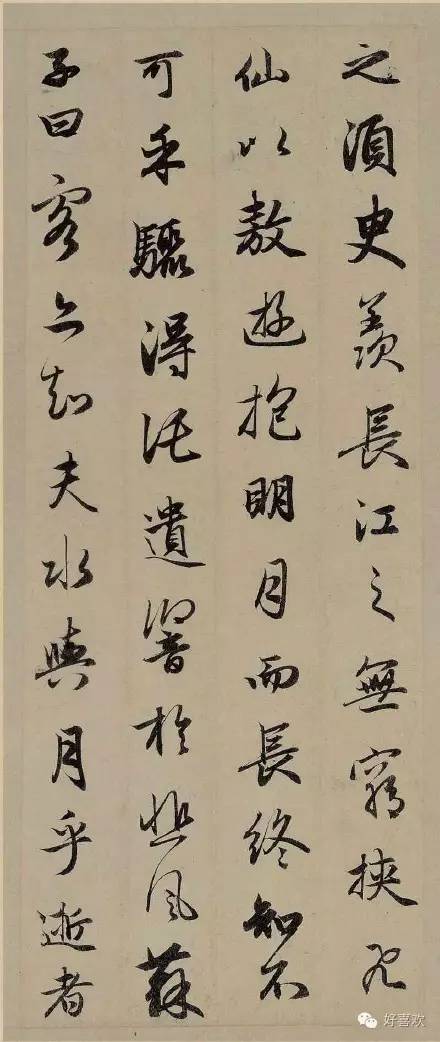 之須臾羨長江之無窮挾飛
仙以敖遊抱明月而長終知不
可乎驟得托遺響於悲風蘇
子曰客亦知夫水與月乎逝者
好喜欢